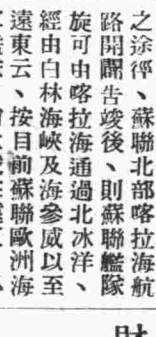 之途徑、蘇聯北部喀拉海航
路開闢告竣後、則蘇聯艦隊
旋可由喀拉海通過北冰洋、
經由白林海峽及海參威以至
遠東云、按目前蘇聯歐洲海